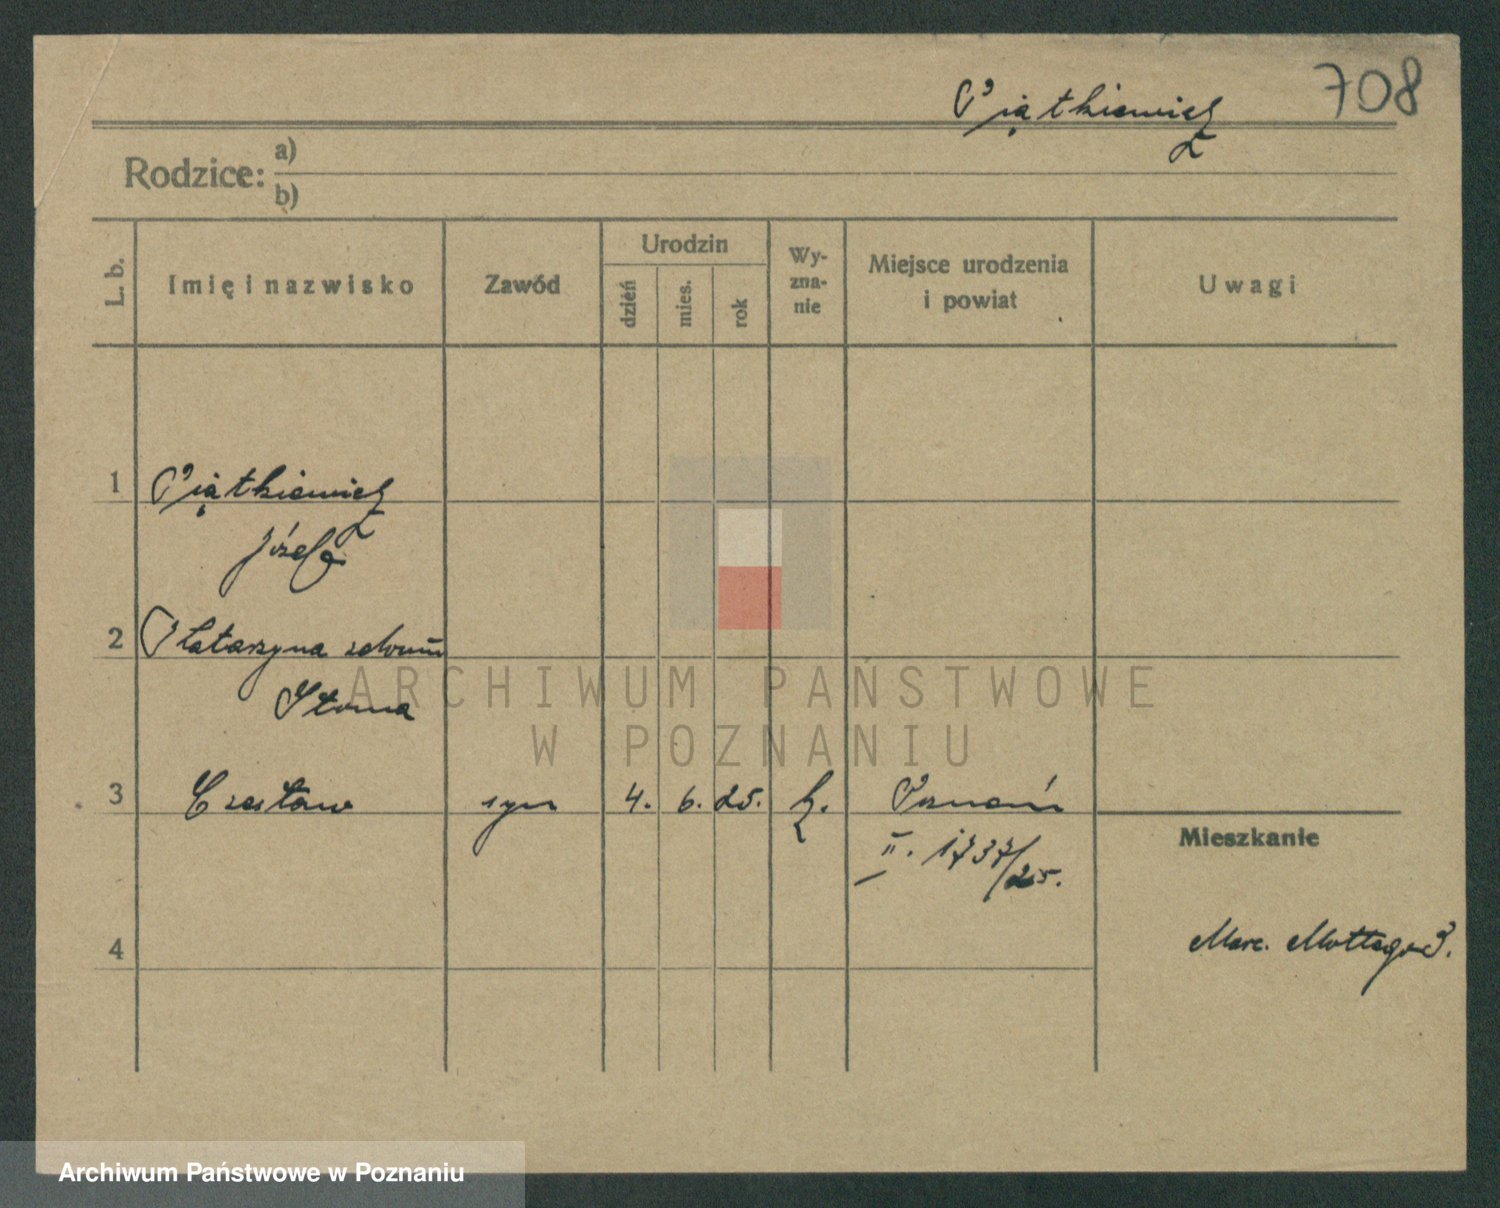 708
Piątkiewicz
Rodzice: a)
b)
L. b.
Imię i nazwisko
Zawód
Urodzin
dzień
mies.
rok
Wy-
zna-
nie
Miejsce urodzenia
i powiat
Uwagi
1 Piątkiewicz
Józef
2 Katarzyna zdomu
Słoma
ARCHIWUM PAŃSTWOWE
W POZNANIU
3 Czesław syn 4. 6. 25. k. Poznań
II. 1737/25.
Mieszkanie
4
Marc. Mottego 3.
Archiwum Państwowe w Poznaniu